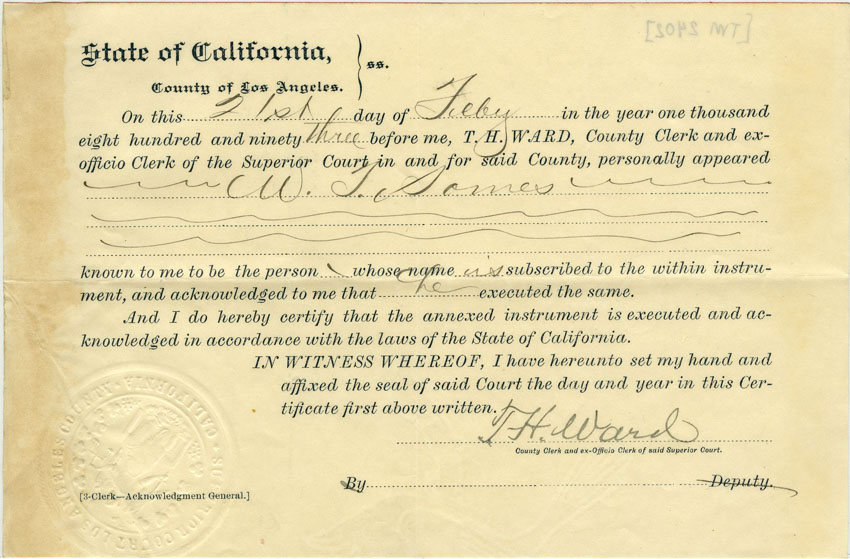 [TW 2405]
State of California,
ss.
County of Los Angeles.
On this 21st day of Feby in the year one thousand
eight hundred and ninety three before me, T. H. WARD, County Clerk and ex-
officio Clerk of the Superior Court in and for said County, personally appeared
W. T. Somes
known to me to be the person whose name is subscribed to the within instru-
ment, and acknowledged to me that he executed the same.
And I do hereby certify that the annexed instrument is executed and ac-
knowledged in accordance with the laws of the State of California.
IN WITNESS WHEREOF, I have hereunto set my hand and
affixed the seal of said Court the day and year in this Cer-
tificate first above written.
T. H. Ward
County Clerk and ex-Officio Clerk of said Superior Court.
By Deputy.
[3-Clerk—Acknowledgment General.]
LOS ANGELES COUNTY, CALIFORNIA